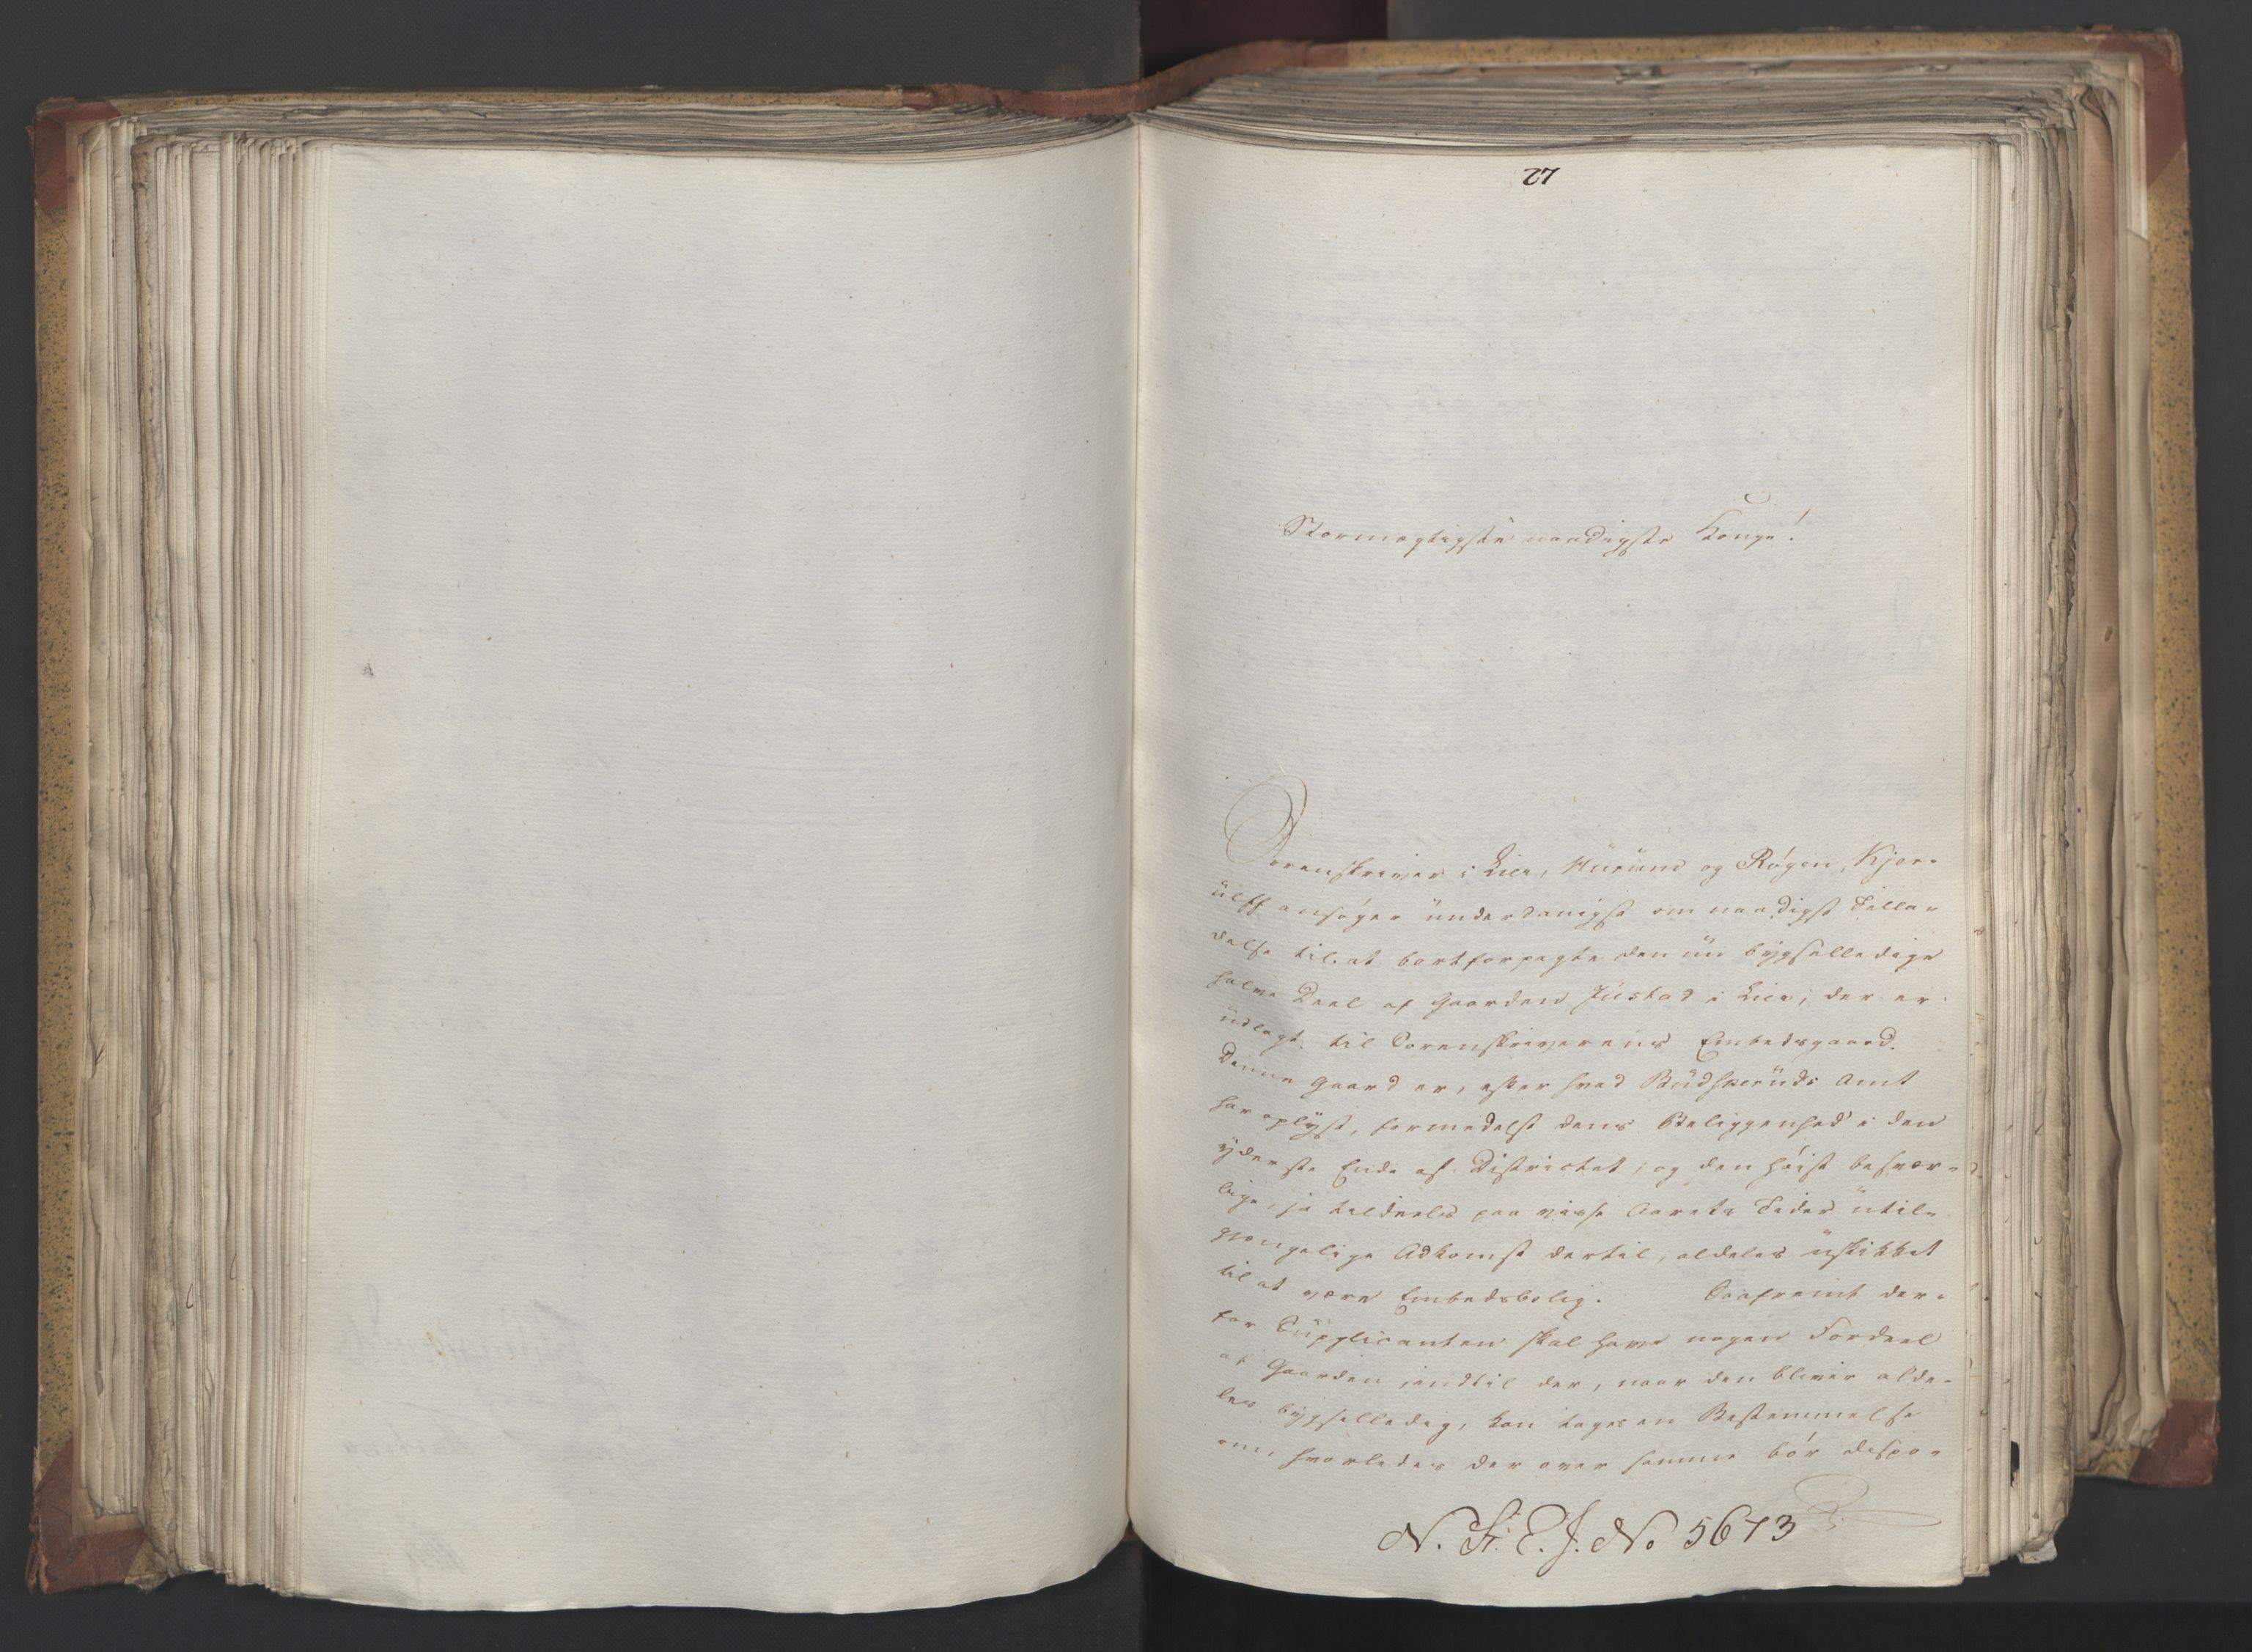 27
Stormægtigste naadigste Konge!
Sorenskriver i Lier, Hurum og Røgen, Kjer-
ulff ansøger underdanigst om naadigst Tilla-
delse til at bortforpagte den nu bygselledige
halve Deel af Gaarden Justad i Lier, der er
udlagt til Sorenskriverens Embedsgaard.
Denne Gaard er, efter hvad Budskeruds Amt
har oplyst, formedelst dens Beliggenhed i den
yderste Ende af Districtet, og den høist besvær-
lige, ja tildeels paa visse Aarets Tider util-
gængelige Adkomst dertil, aldeles uskikket
til at være Embedsbolig. Saafremt der-
for Supplicanten skal have nogen Fordeel
af Gaarden indtil der, naar den bliver alde-
les bygselledig, kan tages en Bestemmelse
om, hvorledes der over samme bør dispo-
N. Fi. C. J. No 5673